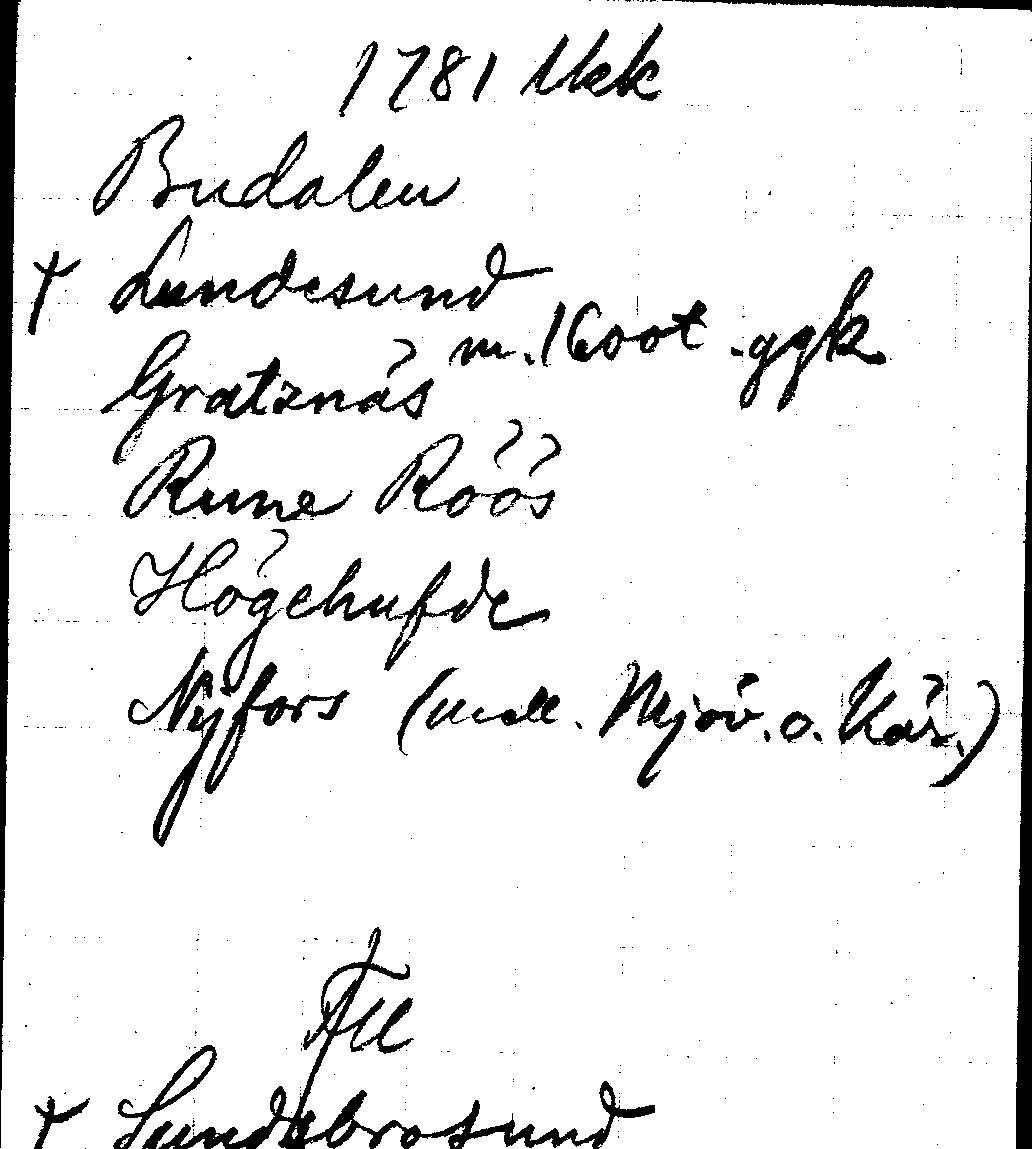 1781 Ukk
Budalen
† Lundesund
Gratznäs m. 1600t. ggk
Rune Röös
Högehufde
Nyfors (mell. Mjöv. o. Kär.)
Fu
† Lundsbrosund